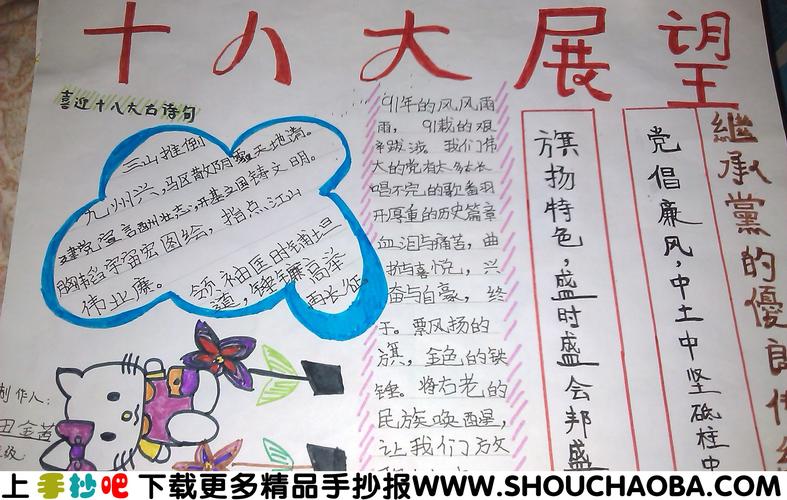 十八大展望
喜迎十八大古诗句
三山推倒
九州兴，散阴霾天地清。
建党宣言酬壮志，开基立国铸文明。
胸韬宇宙宏图绘，指点江山
伟业赓。
领袖匡时铺坦
道，锤镰高举
再长征。
91年的风风雨
雨，91载的艰
辛跋涉 我们伟
大的党有太多太长
唱不完的歌
开厚重的历史篇章
血泪与痛苦，曲
折与喜悦，兴
奋与自豪，终
于。飘扬的
旗，金色的铁
锤。将古老的
民族唤醒，
让我们放
旗扬特色，盛时盛会邦盛
党倡廉风，中土中坚砥柱中
继承黨的優良传
制作人：
田金
班级:
上手抄吧 下载更多精品手抄报WWW.SHOUCHAOBA.COM